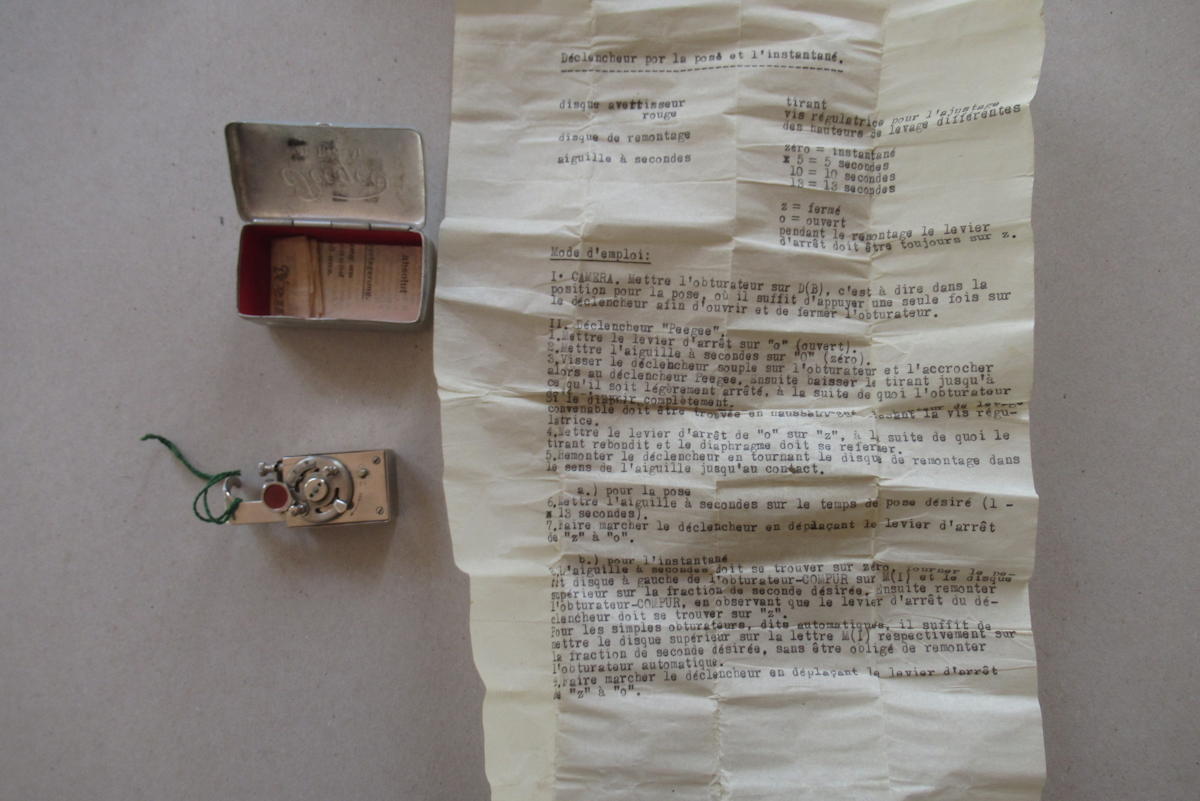 Déclencheur por la pose et l'instantané.
disque avertisseur
rouge
disque de remontage
aiguille à secondes
tirant
vis régulatrice pour l'ajustage
des hauteurs de levage différentes
zéro = instantané
x 5 = 5 secondes
10 = 10 secondes
13 = 13 secondes
z = fermé
o = ouvert
pendant le remontage le levier
d'arrêt doit être toujours sur z.
Mode d'emploi:
I• CAMERA. Mettre l'obturateur sur D(B), c'est à dire dans la
position pour la pose, où il suffit d'appuyer une seule fois sur
le déclencheur afin d'ouvrir et de fermer l'obturateur.
II. Déclencheur "Peegee".
1.Mettre le levier d'arrêt sur "o" (ouvert).
2.Mettre l'aiguille à secondes sur "0" (zéro).
3.Visser le déclencheur souple sur l'obturateur et l'accrocher
alors au déclencheur Peegee. Ensuite baisser le tirant jusqu'à
ce qu'il soit légèrement arrêté, à la suite de quoi l'obturateur
complètement.
convenable doit être trouvée en la vis régu-
latrice.
4.Mettre le levier d'arrêt de "o" sur "z", à la suite de quoi le
tirant rebondit et le diaphragme doit se refermer.
5.Remonter le déclencheur en tournant le disque de remontage dans
le sens de l'aiguille jusqu'au contact.
a.) pour la pose
6.Mettre l'aiguille à secondes sur le temps de pose désiré (1 -
x 13 secondes).
7.Faire marcher le déclencheur en déplaçant le levier d'arrêt
de "z" à "o".
b.) pour l'instantané
L'aiguille à secondes doit se trouver sur zéro. Tourner le pe-
tit disque à gauche de l'obturateur-COMPUR sur M(I) et le disque
supérieur sur la fraction de seconde désirée. Ensuite remonter
l'obturateur-COMPUR, en observant que le levier d'arrêt du dé-
clencheur doit se trouver sur "z".
Pour les simples obturateurs, dits automatiques, il suffit de
mettre le disque supérieur sur la lettre M(I) respectivement sur
la fraction de seconde désirée, sans être obligé de remonter
l'obturateur automatique.
9.Faire marcher le déclencheur en déplaçant le levier d'arrêt
de "z" à "o".
absolut